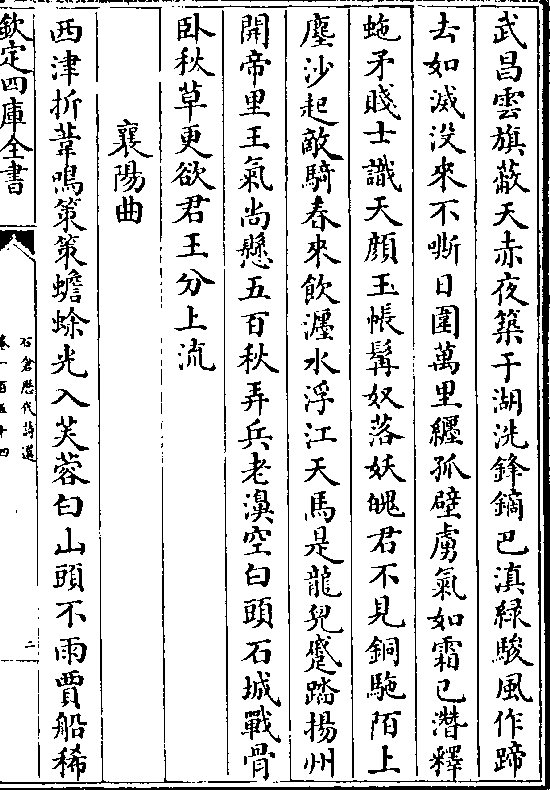 武昌雲旗蔽天赤夜築于湖洗鋒鏑巴滇綠駿風作蹄
去如滅没來不嘶日圍萬里纒孤壁虜氣如霜已潛釋
虵矛賤士識天顔玉帳髯奴落妖魄君不見銅駞陌上
塵沙起敵騎春來飲瀍水浮江天馬是龍兒蹙踏揚州
開帝里王氣尚懸五百秋弄兵老濞空白頭石城戰骨
卧秋草更欲君王分上流
襄陽曲
西津折葦鳴策策蟾蜍光入芙蓉白山頭不雨賈船稀
欽定四庫全書
石倉歴代詩選
卷一百五十四
二